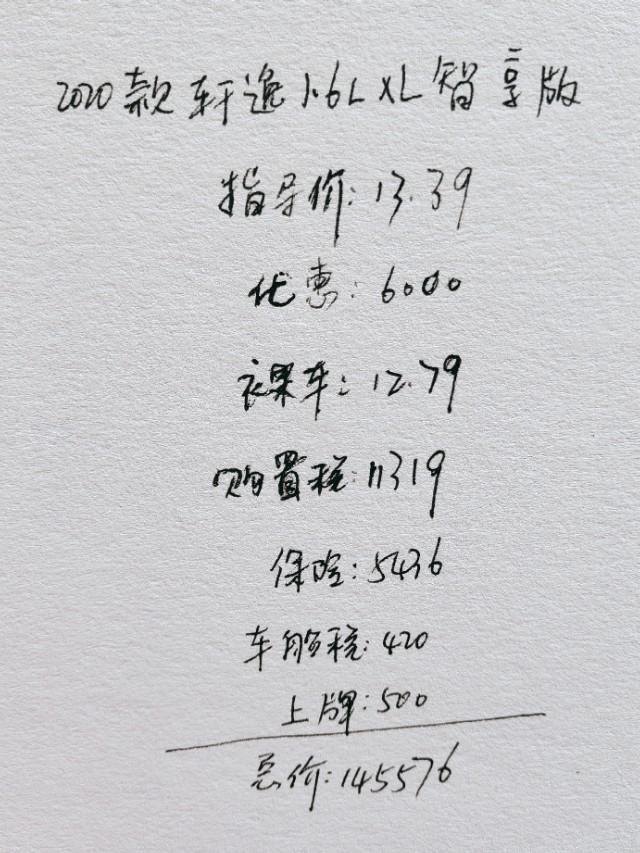 2020款轩逸1.6L XL智享版
指导价:13.39
优惠:6000
裸车:12.79
购置税:11319
保险:5436
车船税:420
上牌:500
总价:145576